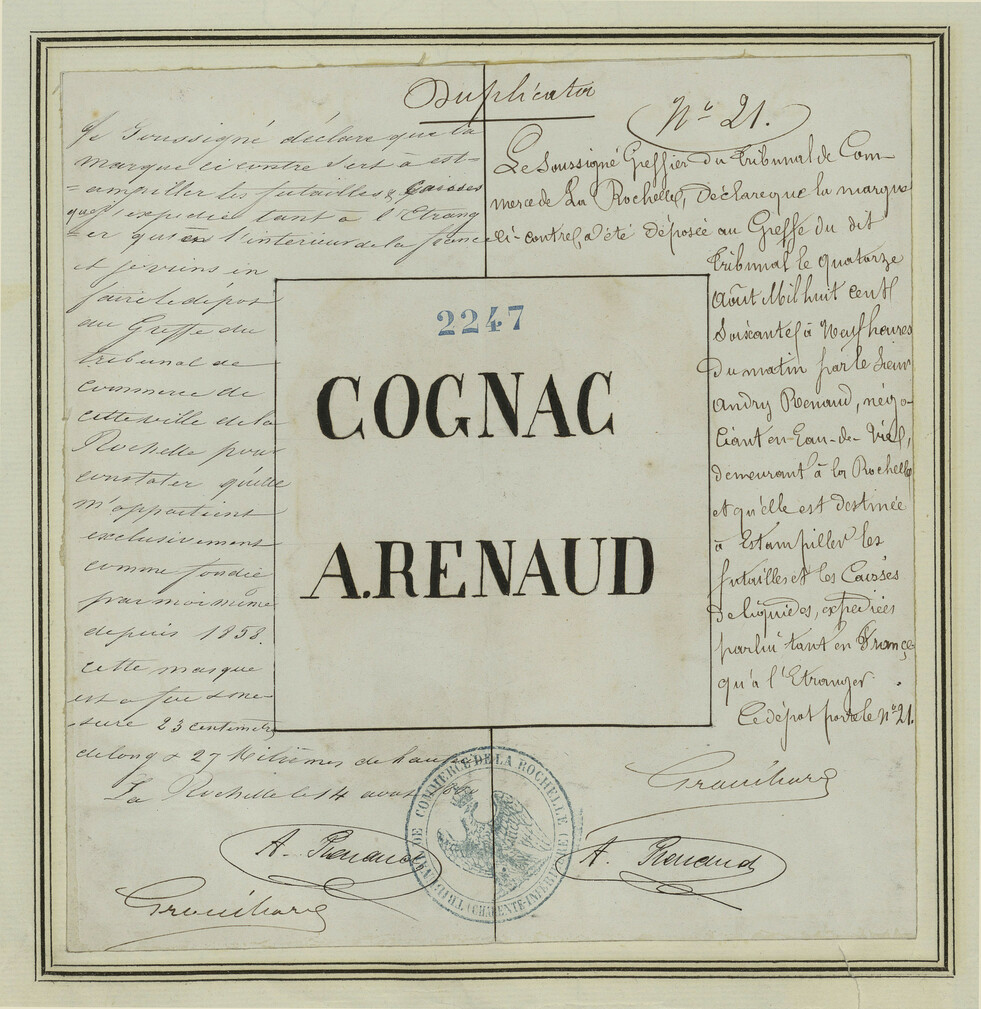 Duplicata
Je Soussigné déclare que la
marque ci contre sert à est=
=ampiller les futailles & Caisses
que j'expédie tant à l'Etrang
=er qu'en l'intérieur de la france
et je viens in
faire le dépos
au Greffe du
tribunal de
commerce de
cette ville de la
Rochelle pour
constater qu'elle
m'appartient
exclusivement
comme fondée
par moi même
depuis 1858.
cette marque
est a feu &
23 centimètres
de long & 27 Milièmes de haut
La Rochelle le 14 aout
A. Renaud
N° 21.
Le Soussigné Greffier du Tribunal de Com-
merce de La Rochelle, Déclare que la marque
ci-contre, a été déposée au Greffe du dit
Tribunal le quatorze
Août Mil huit cent
Soixante, à Neuf heures
du matin par le Sieur
Andry Renaud, négo-
ciant en Eau-de-Vie,
demeurant à la Rochelle
et qu'elle est destinée
à Estampiller les
futailles et les Caisses
de liquides, expediées
par lui tant en France
qu'à l'Etranger.
Ce dépôt porte le n° 21.
A. Renaud
2247
COGNAC
A.RENAUD
DE COMMERCE DE LA ROCHELLE